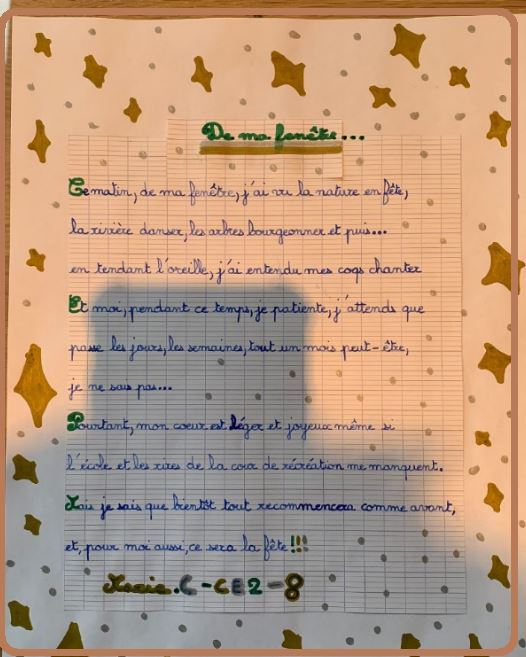 De ma fenêtre...
Ce matin, de ma fenêtre, j'ai vu la nature en fête,
la rivière danser, les arbres bourgeonner et puis...
en tendant l'oreille, j'ai entendu mes coqs chanter
Et moi, pendant ce temps, je patiente, j'attends que
passe les jours, les semaines, tout un mois peut-être,
je ne sais pas...
Pourtant, mon coeur est léger et joyeux même si
l'école et les rires de la cour de récréation me manquent.
je sais que bientôt tout recommencera comme avant,
et, pour moi aussi, ce sera la fête!!!
.C-CE2-8